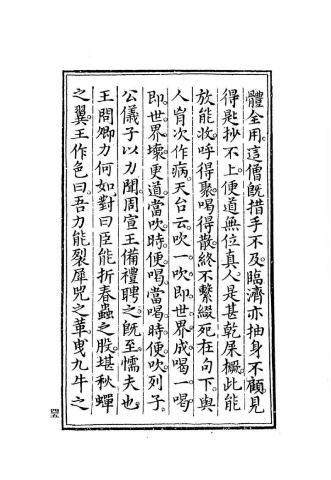 體全用這僧既措手不及臨濟亦抽身不顧見
得匙抄不上便道無位真人是甚乾屎橛此能
放能收呼得聚喝得散終不繫綴死在句下與
人肓次作病天台云吹一吹即世界成喝一喝
即世界壞更道當吹時便喝當喝時便吹列子
公儀子以力聞周宣王備禮聘之既至懦夫也
王問卿力何如對曰臣能折春蟲之股堪秋蟬
之翼王作色曰吾力能裂犀兕之革曳九牛之
四五